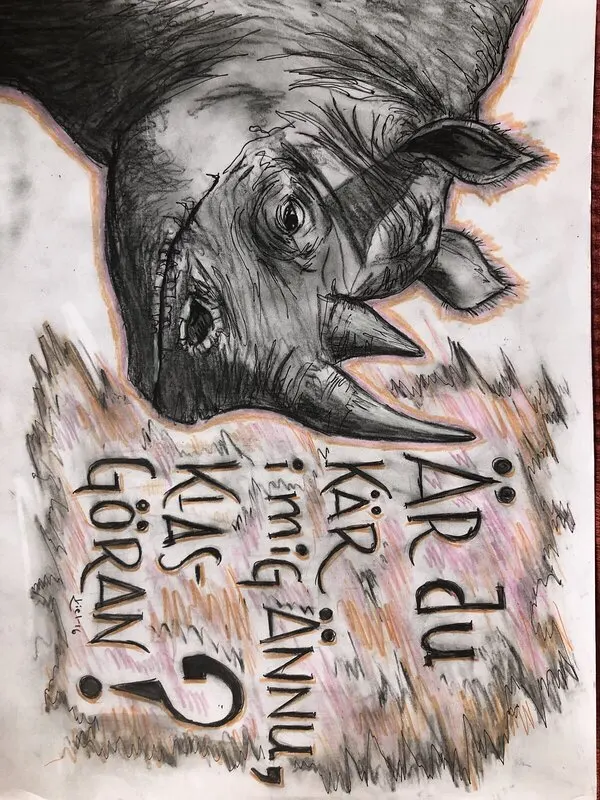 ÄR du
KÄR
i mig ÄNNU,
KLAS-
GÖRAN?